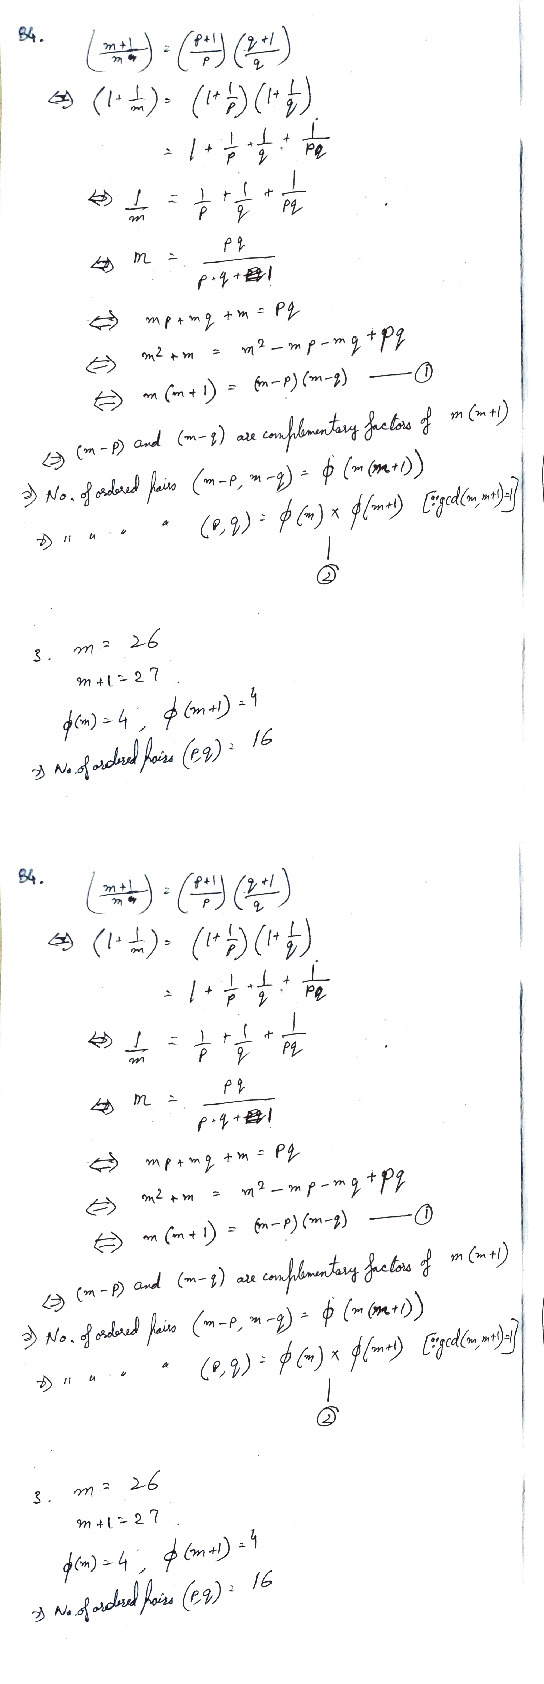 84. (m+1/m) = (p+1/p) (q+1/q)
⇔ (1+1/m) = (1+1/p)(1+1/q)
= 1 + 1/p + 1/q + 1/pq
⇔ 1/m = 1/p + 1/q + 1/pq
⇔ m = pq/p+q+1
⇔ mp+mq+m = pq
⇔ m²+m = m²-mp-mq+pq
⇔ m(m+1) = (m-p)(m-q) — ①
⇔ (m-p) and (m-q) are complementary factors of m(m+1)
⇒ No. of ordered pairs (m-p, m-q) = φ(m(m+1))
⇒ " " " " (p,q) = φ(m) × φ(m+1) [∵gcd(m,m+1)=1]
②
3. m = 26
m+1 = 27
φ(m) = 4, φ(m+1) = 4
⇒ No. of ordered pairs (p,q) = 16
84. (m+1/m) = (p+1/p) (q+1/q)
⇔ (1+1/m) = (1+1/p)(1+1/q)
= 1 + 1/p + 1/q + 1/pq
⇔ 1/m = 1/p + 1/q + 1/pq
⇔ m = pq/p+q+1
⇔ mp+mq+m = pq
⇔ m²+m = m²-mp-mq+pq
⇔ m(m+1) = (m-p)(m-q) — ①
⇔ (m-p) and (m-q) are complementary factors of m(m+1)
⇒ No. of ordered pairs (m-p, m-q) = φ(m(m+1))
⇒ " " " " (p,q) = φ(m) × φ(m+1) [∵gcd(m,m+1)=1]
②
3. m = 26
m+1 = 27
φ(m) = 4, φ(m+1) = 4
⇒ No. of ordered pairs (p,q) = 16